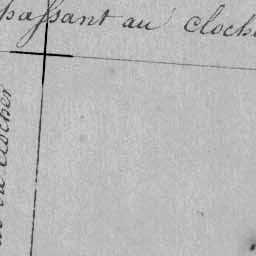 passant au cloch
du clocher